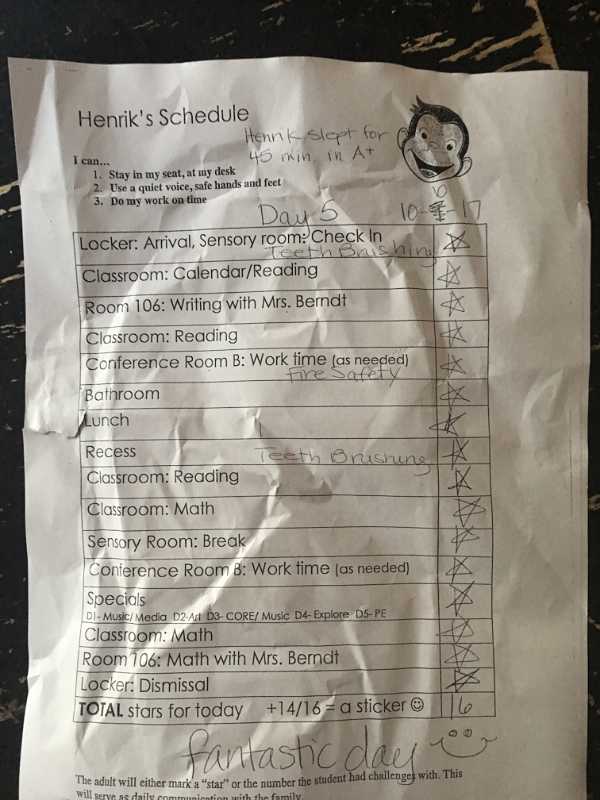 Henrik's Schedule
Henrik slept for
45 min. in A+
I can...
1. Stay in my seat, at my desk
2. Use a quiet voice, safe hands and feet
3. Do my work on time
Day 5 10-6-17
Locker: Arrival, Sensory room: Check In
Teeth Brushing
Classroom: Calendar/Reading
Room 106: Writing with Mrs. Berndt
Classroom: Reading
Conference Room B: Work time (as needed)
Fire Safety
Bathroom
Lunch
Recess Teeth Brushing
Classroom: Reading
Classroom: Math
Sensory Room: Break
Conference Room B: Work time (as needed)
Specials
D1- Music/ Media D2-Art D3- CORE/ Music D4- Explore D5- PE
Classroom: Math
Room 106: Math with Mrs. Berndt
Locker: Dismissal
TOTAL stars for today +14/16 = a sticker ☺ 16
fantastic day
The adult will either mark a "star" or the number the student had challenges with. This
will serve as daily communication with the family.